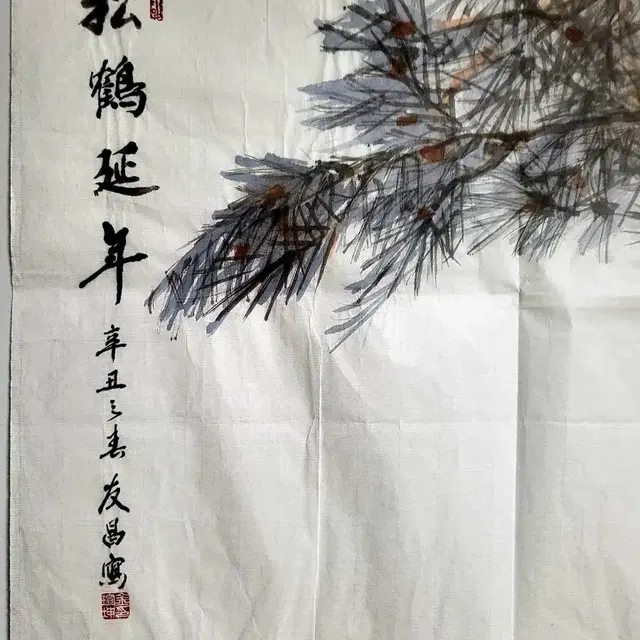 松鶴延年
辛丑之春友昌寫